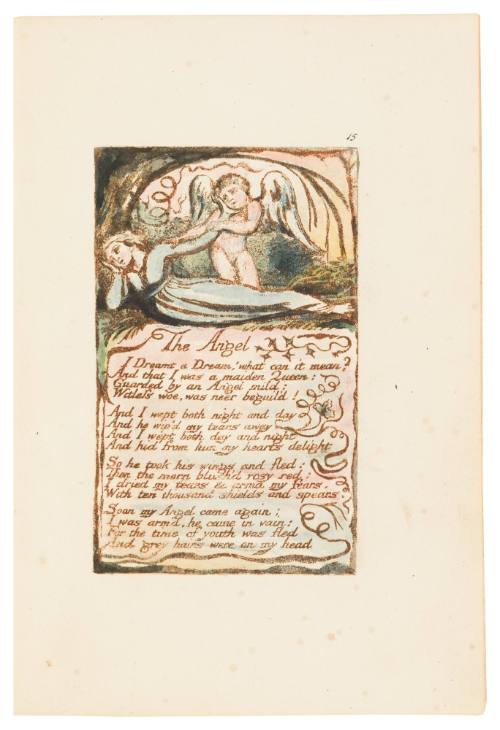 15
The Angel
I Dreamt a Dream! what can it mean?
And that I was a maiden Queen:
Guarded by an Angel mild;
Witless woe, was neer beguil'd!
And I wept both night and day
And he wip'd my tears away
And I wept both day and night
And hid from him my hearts delight
So he took his wings and fled:
Then the morn blush'd rosy red:
I dried my tears & armd my fears,
With ten thousand shields and spears,
Soon my Angel came again;
I was arm'd, he came in vain:
For the time of youth was fled
And grey hairs were on my head